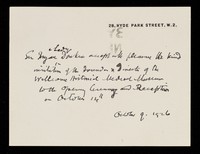 29, HYDE PARK STREET, W.2.
& Lady
Sir Bryan Donkin accepts with pleasure the kind
invitation of the Founder & Director of the
Wellcome Historical Medical Museum
to the Opening Ceremony and Reception
on October 14th
October 9. 1926